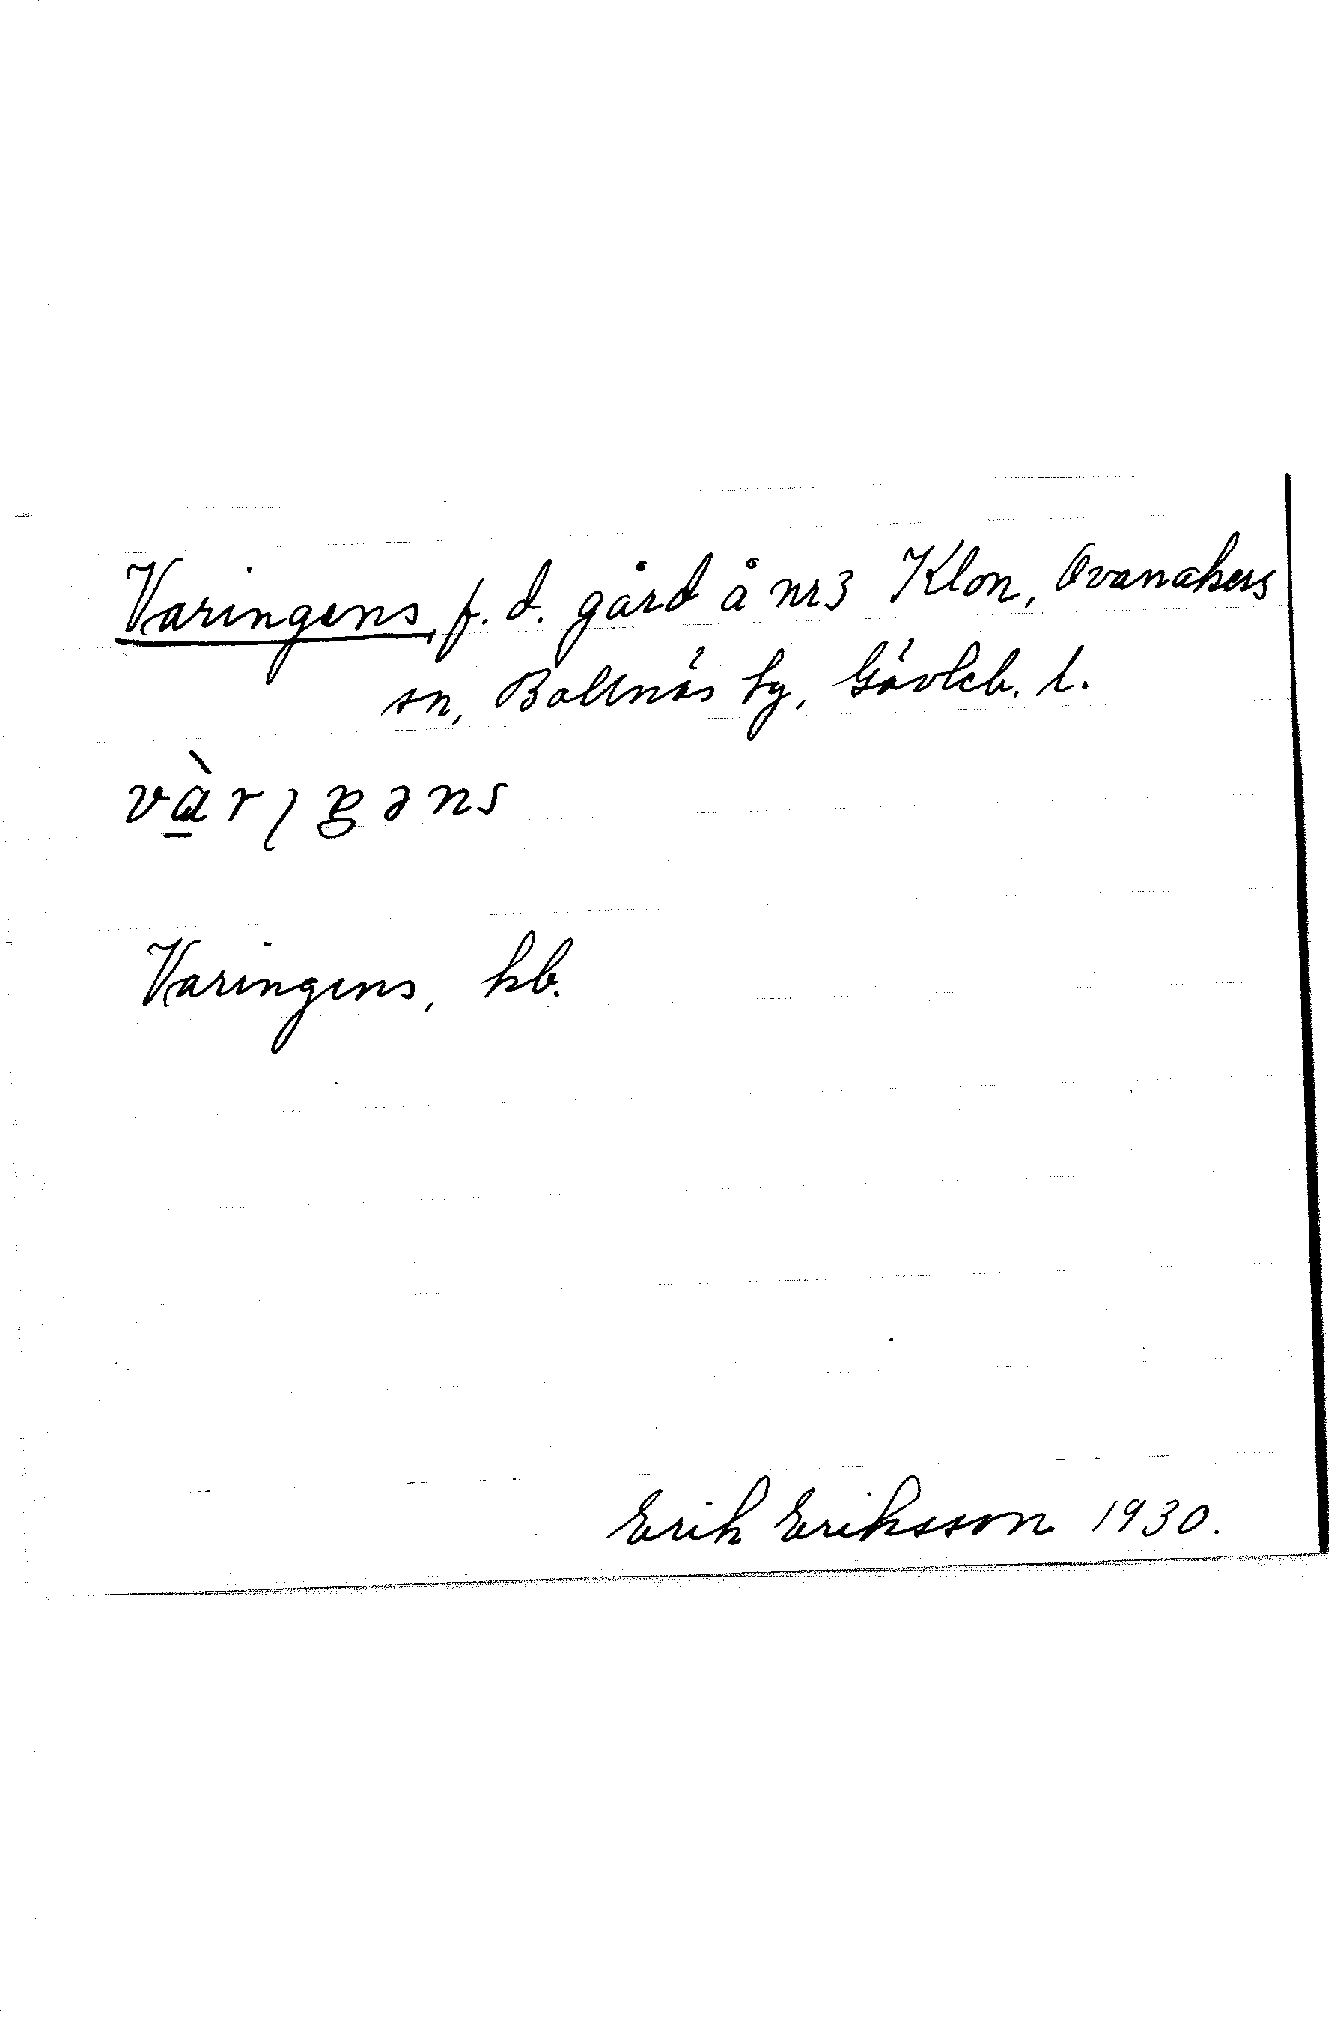 Varingens, f. d. gård å nr 3 Klon, Ovanakers
sn, Bollnäs tg, Gävleb. l.
Varingens, kb.
Erik Eriksson 1930.